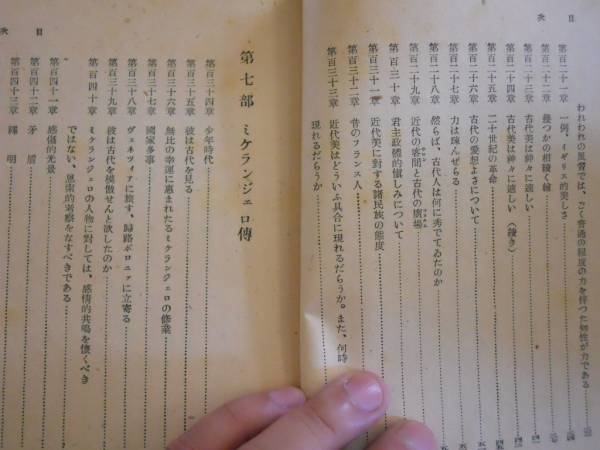 目次
われわれの風習では、ごく普通の程度の力を持つた個性が力である
第百二十一章 一例、イギリス的美しさ
第百二十二章 幾つかの相續く繪
第百二十三章 古代美は神々に適しい
第百二十四章 古代美は神々に適しい(續き)
第百二十五章 二十世紀の革命
第百二十六章 古代の愛想よさについて
第百二十七章 力は疎んぜらる
第百二十八章 然らば、古代人は何に秀でてゐたのか
第百二十九章 近代の客間と古代の廣場
第百三十章 君主政體的愼しみについて
第百三十一章 近代美に對する諸民族の態度
第百三十二章 昔のフランス人
第百三十三章 近代美はどういふ具合に現れるだらうか。また、何時
現れるだらうか
第七部 ミケランジェロ傳
第百三十四章 少年時代
第百三十五章 彼は古代を見る
第百三十六章 無比の幸運に惠まれたるミケランジェロの修業
第百三十七章 國家多事
第百三十八章 ヴェネツィアに旅す、歸路ボロニァに立寄る
第百三十九章 彼は古代を模倣せんと欲したのか
第百四十章 ミケランジェロの人物に對しては、感情的共鳴を懷くべき
ではない、思索的考察をなすべきである
第百四十一章 感傷的光景
第百四十二章 矛盾
第百四十三章 釋明
目次